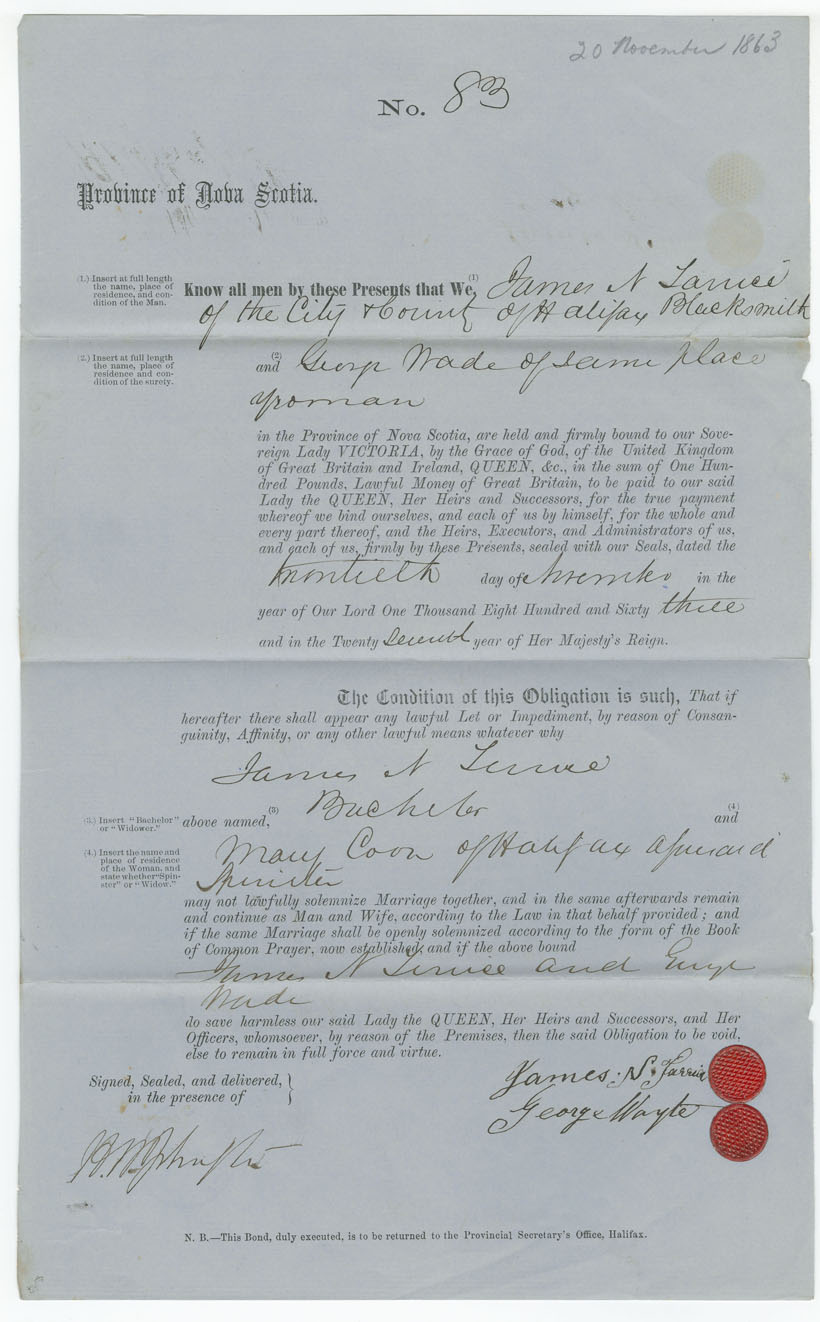 20 November 1863
No. 83
Province of Nova Scotia.
(1.) Insert at full length
the name, place of
residence, and con-
dition of the Man.
Know all men by these Presents that We, (1) James N
of the City & County of Halifax Blacksmith
(2.) Insert at full length
the name, place of
residence and con-
dition of the surety.
and (2) George Wade of same place
yeoman
in the Province of Nova Scotia, are held and firmly bound to our Sove-
reign Lady VICTORIA, by the Grace of God, of the United Kingdom
of Great Britain and Ireland, QUEEN, &c., in the sum of One Hun-
dred Pounds, Lawful Money of Great Britain, to be paid to our said
Lady the QUEEN, Her Heirs and Successors, for the true payment
whereof we bind ourselves, and each of us by himself, for the whole and
every part thereof, and the Heirs, Executors, and Administrators of us,
and each of us, firmly by these Presents, sealed with our Seals, dated the
day of November in the
year of Our Lord One Thousand Eight Hundred and Sixty three
and in the Twenty Seventh year of Her Majesty's Reign.
The Condition of this Obligation is such, That if
hereafter there shall appear any lawful Let or Impediment, by reason of Consan-
guinity, Affinity, or any other lawful means whatever why
James N
(3.) Insert "Bachelor"
or "Widower."
above named, (3) Bachelor (4) and
(4.) Insert the name and
place of residence
of the Woman, and
state whether "Spin-
ster" or "Widow."
Mary Coon of Halifax aforesaid
Spinster
may not lawfully solemnize Marriage together, and in the same afterwards remain
and continue as Man and Wife, according to the Law in that behalf provided; and
if the same Marriage shall be openly solemnized according to the form of the Book
of Common Prayer, now established, and if the above bound
James N and George
Wade
do save harmless our said Lady the QUEEN, Her Heirs and Successors, and Her
Officers, whomsoever, by reason of the Premises, then the said Obligation to be void,
else to remain in full force and virtue.
Signed, Sealed, and delivered,
in the presence of
James. N.
George Wayte
N. B.—This Bond, duly executed, is to be returned to the Provincial Secretary's Office, Halifax.